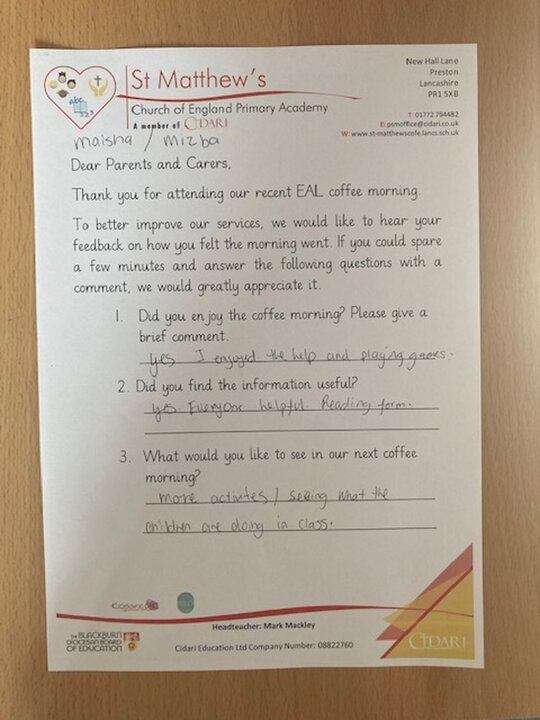 abc
123
St Matthew's
Church of England Primary Academy
A member of CIDARI
New Hall Lane
Preston
Lancashire
PR1 5XB
T: 01772 794482
E: psmoffice@cidari.co.uk
W: www.st-matthewscofe.lancs.sch.uk
maisha / mizba
Dear Parents and Carers,
Thank you for attending our recent EAL coffee morning.
To better improve our services, we would like to hear your
feedback on how you felt the morning went. If you could spare
a few minutes and answer the following questions with a
comment, we would greatly appreciate it.
1. Did you enjoy the coffee morning? Please give a
brief comment.
yes I enjoyed the help and playing games.
2. Did you find the information useful?
yes Everyone helpful. Reading form.
3. What would you like to see in our next coffee
morning?
more activites / seeing what the
children are doing in class.
Headteacher: Mark Mackley
Cidari Education Ltd Company Number: 08822760
THE BLACKBURN
DIOCESAN BOARD
OF EDUCATION
CIDARI